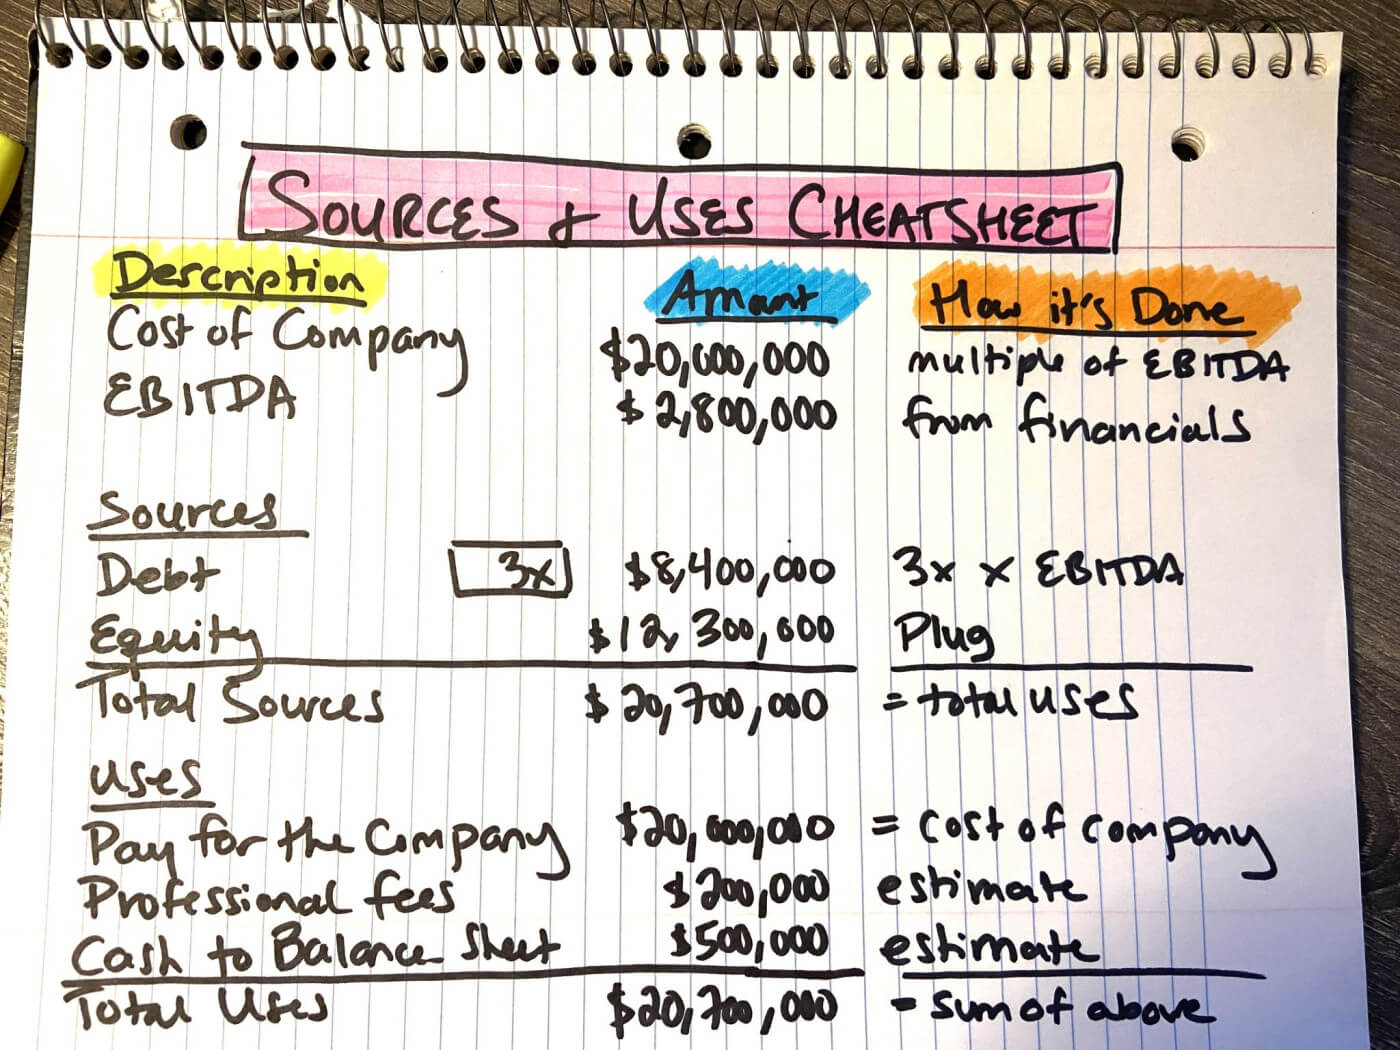 SOURCES & USES CHEATSHEET
Description Amount How it's Done
Cost of Company $20,000,000 multiple of EBITDA
EBITDA $2,800,000 from financials
Sources
Debt 3x $8,400,000 3x x EBITDA
Equity $12,300,000 Plug
Total Sources $20,700,000 = total uses
Uses
Pay for the Company $20,000,000 = cost of company
Professional fees $200,000 estimate
Cash to Balance Sheet $500,000 estimate
Total Uses $20,700,000 = sum of above